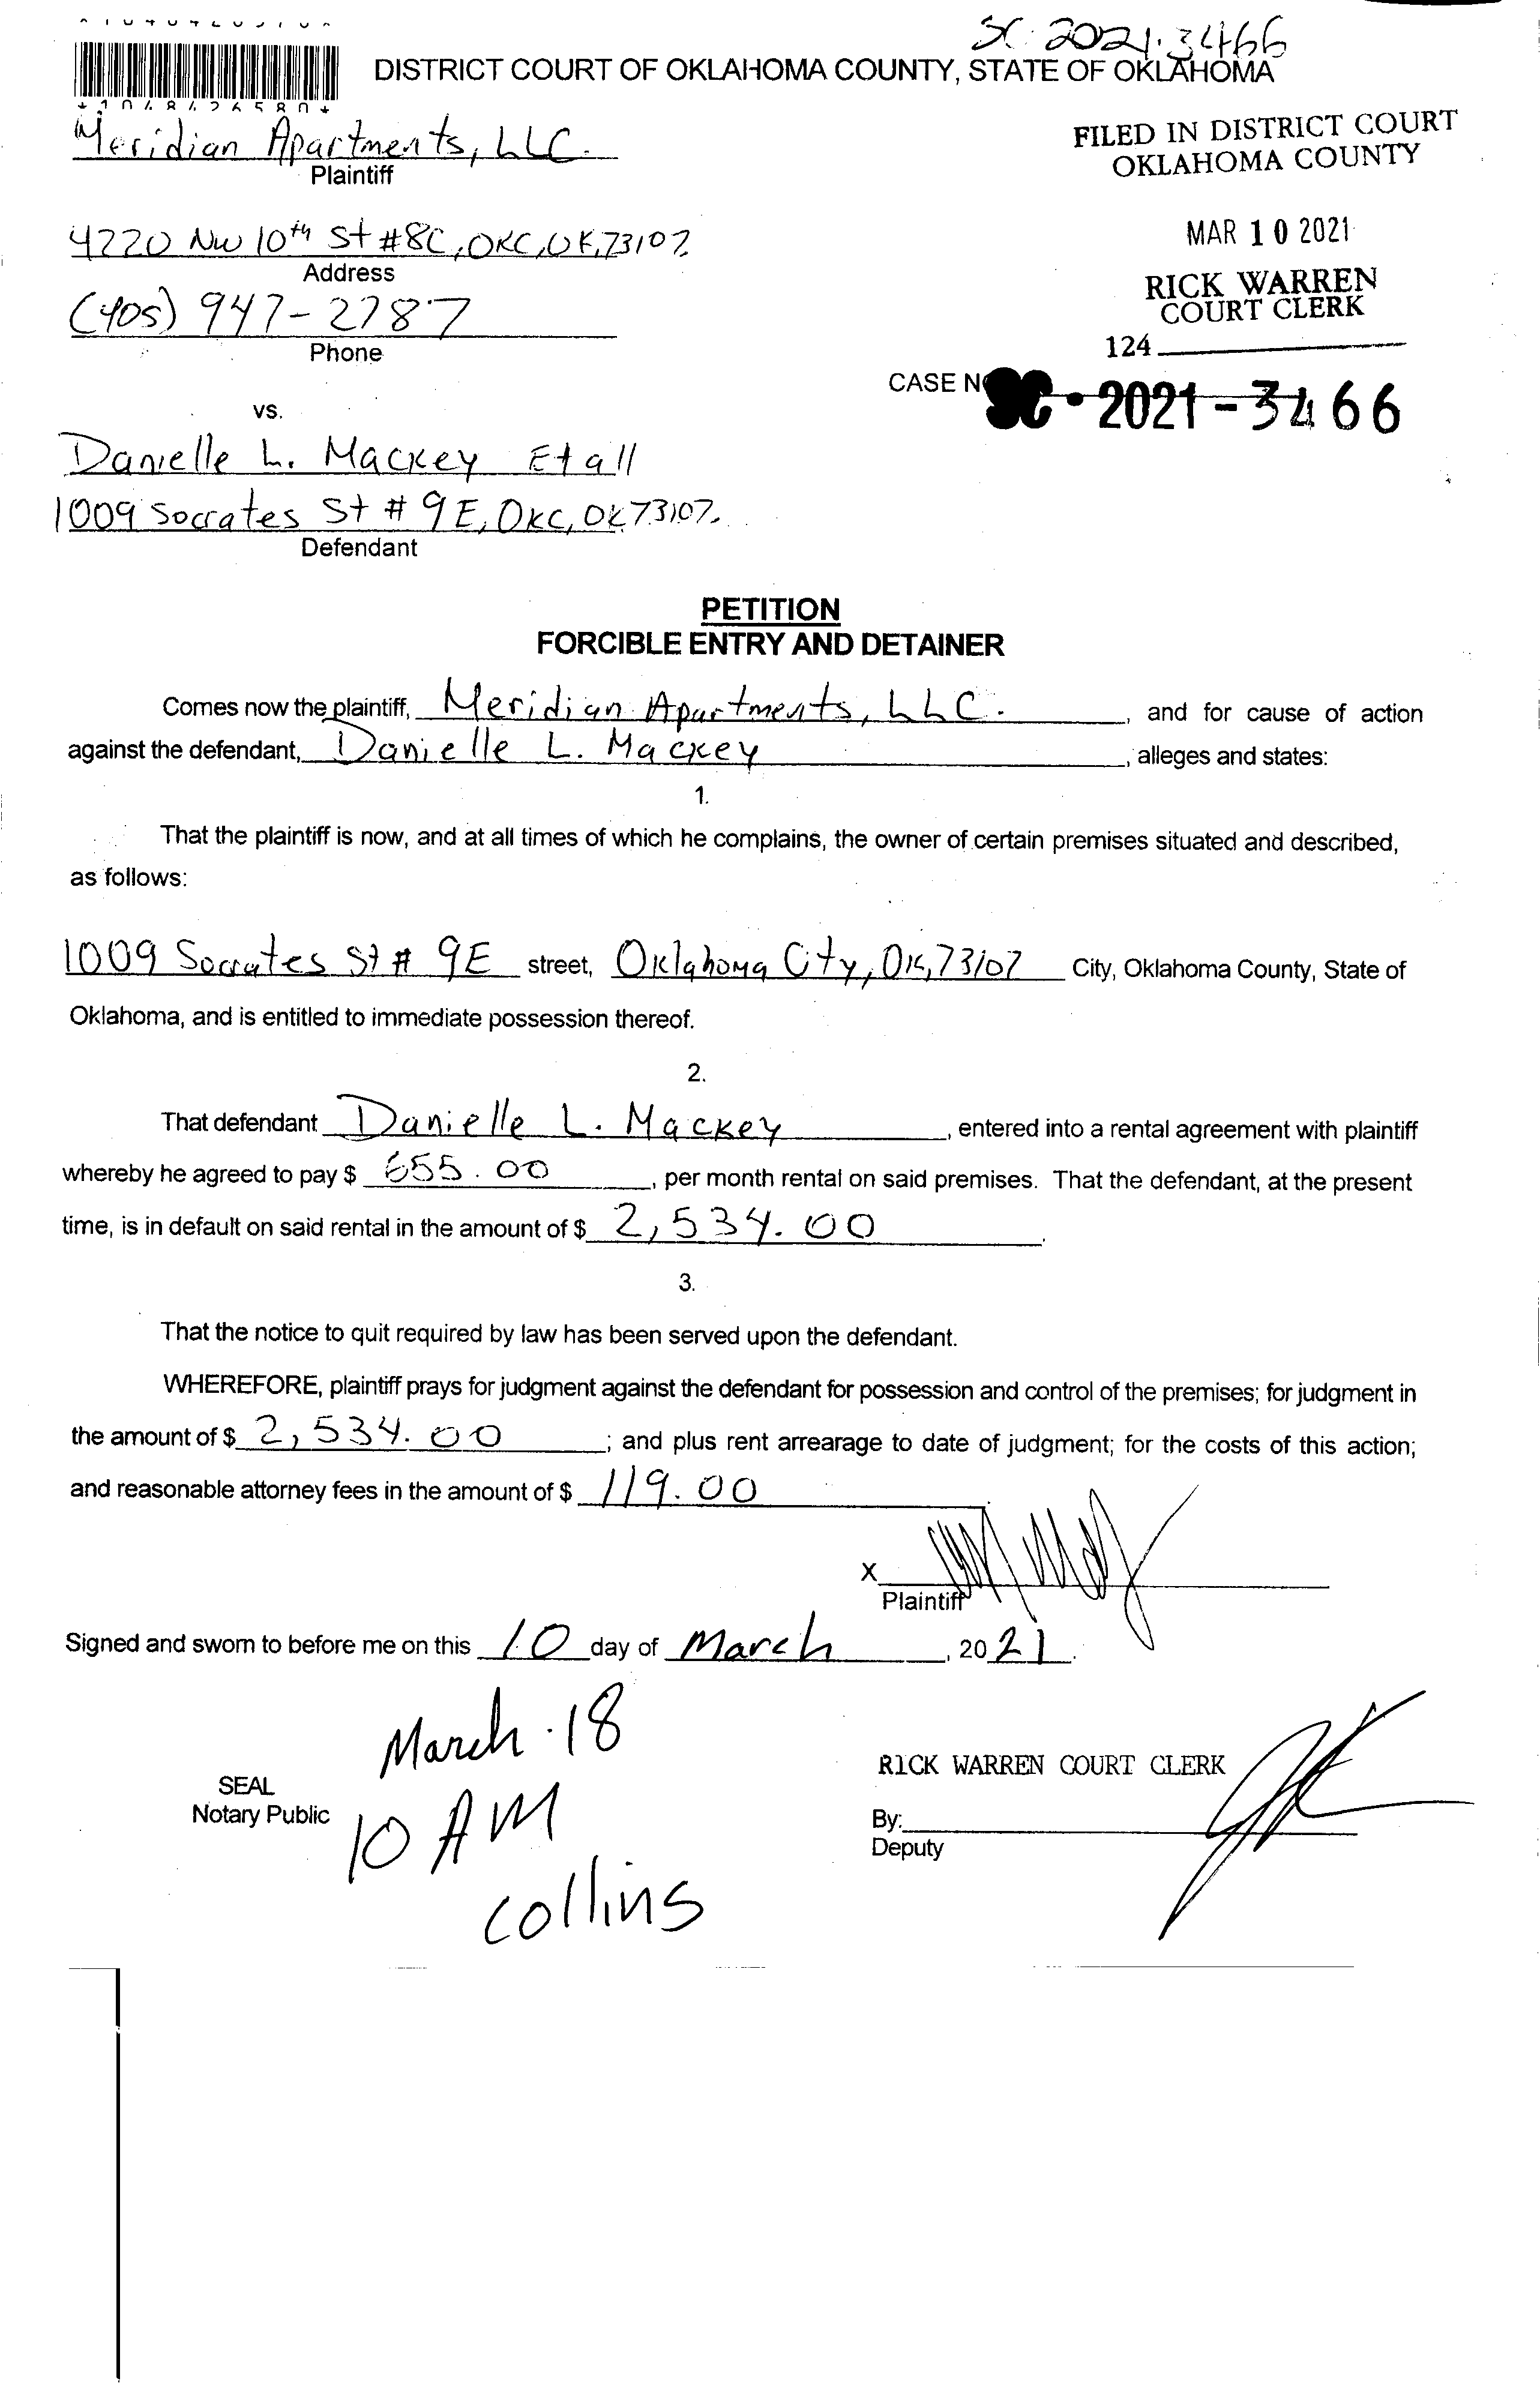 SC-2021-3466
DISTRICT COURT OF OKLAHOMA COUNTY, STATE OF OKLAHOMA
*1048426580*
Meridian Apartments, LLC.
Plaintiff
FILED IN DISTRICT COURT
OKLAHOMA COUNTY
4220 NW 10th St #8C, OKC, OK, 73107
Address
MAR 10 2021
(405) 947-2787
Phone
RICK WARREN
COURT CLERK
124
CASE NO
SC-2021-3466
vs.
Danielle L. Mackey Et all
1009 Socrates St # 9E, OKC, OK 73107.
Defendant
PETITION
FORCIBLE ENTRY AND DETAINER
Comes now the plaintiff, Meridian Apartments, LLC. , and for cause of action
against the defendant, Danielle L. Mackey , alleges and states:
1.
That the plaintiff is now, and at all times of which he complains, the owner of certain premises situated and described,
as follows:
1009 Socrates St # 9E street, Oklahoma City, OK, 73107 City, Oklahoma County, State of
Oklahoma, and is entitled to immediate possession thereof.
2.
That defendant Danielle L. Mackey , entered into a rental agreement with plaintiff
whereby he agreed to pay $ 655.00 , per month rental on said premises. That the defendant, at the present
time, is in default on said rental in the amount of $ 2,534.00 .
3.
That the notice to quit required by law has been served upon the defendant.
WHEREFORE, plaintiff prays for judgment against the defendant for possession and control of the premises; for judgment in
the amount of $ 2,534.00 ; and plus rent arrearage to date of judgment; for the costs of this action;
and reasonable attorney fees in the amount of $ 119.00
X
Plaintiff
Signed and sworn to before me on this 10 day of March , 20 21 .
March 18
10 AM
Collins
SEAL
Notary Public
RICK WARREN COURT CLERK
By:
Deputy